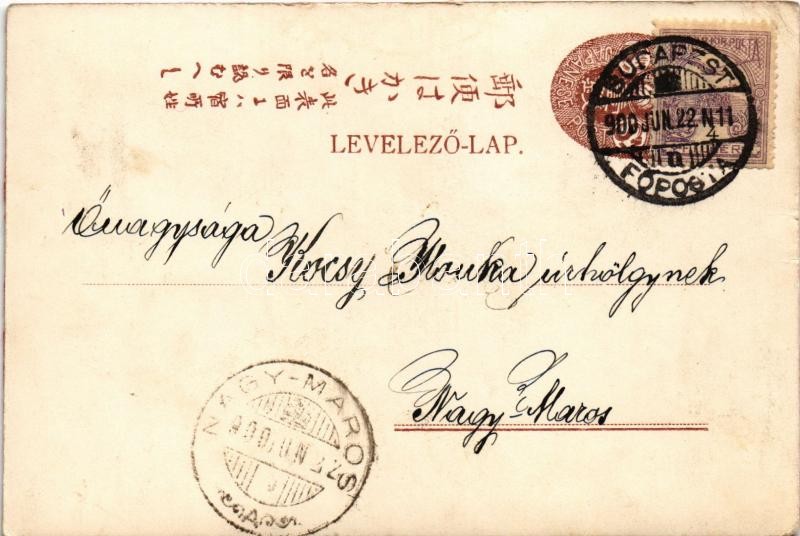 郵便はかき
此表面ニハ宿所姓
名を限り認むへし
LEVELEZŐ-LAP.
BUDAPEST
900 JUN. 22. N 11
FŐPOSTA
Őnagysága,
Kocsy Monka úrhölgynek
Nagy-Maros
NAGY-MAROS
900 JUN